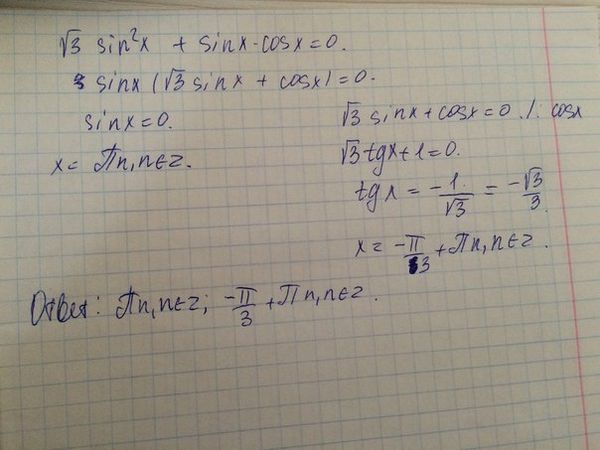 √3 sin²x + sinx·cosx=0.
sinx (√3 sinx + cosx)=0.
sinx=0.
x= πn, n∈z.
√3 sinx+cosx=0 /: cosx
√3 tgx+1=0.
tgx = -1/√3 = -√3/3.
x= -π/3 +πn, n∈z.
Ответ: πn, n∈z; -π/3 + πn, n∈z.